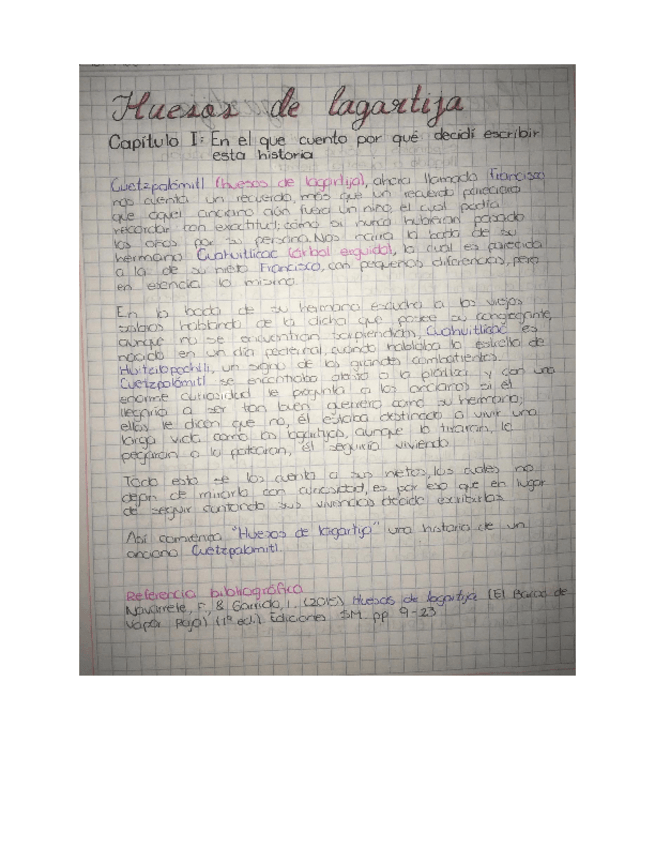 Huesos de lagartija
Capítulo I: En el que cuento por qué decidí escribir
esta historia
Cuetzpalómitl (huesos de lagartija), ahora llamado Francisco
nos cuenta un recuerdo, más que un recuerdo pareciera
que aquel anciano aún fuera un niño, el cual podía
recordar con exactitud, cómo si nunca hubieran pasado
los años por su persona. Nos narra la boda de su
hermano Cuahuitlícac (árbol erguido), la cual es parecida
a la de su nieto Francisco, con pequeñas diferencias, pero
en esencia lo mismo.
En la boda de su hermano escucha a los viejos
sabios hablando de la dicha que posee su
aunque no se encuentran sorprendidos, Cuahuitlícac es
nacido en un día, cuándo hablaba la estrella de
un signo de los grandes combatientes.
Cuetzpalómitl se encontraba a la plática y con una
enorme curiosidad le pregunta a los ancianos si él
llegaría a ser tan buen guerrero como su hermano;
ellos le dicen que no, él estaba destinado a vivir una
larga vida como las lagartijas, aunque lo tiraran, le
pegaran o lo patearan, él seguiría viviendo.
Todo esto se los cuenta a sus nietos, los cuales no
dejan de mirarlo con curiosidad, es por eso que en lugar
de seguir contando sus vivencias decide escribirlas.
Así comienza "Huesos de lagartija" una historia de un
anciano Cuetzpalómitl.
Referencia bibliográfica
Navarrete, F., & Garrido, I. (2015) Huesos de lagartija (El Barco de
Vapor Roja) (1ª ed.). Ediciones SM. pp. 9-23